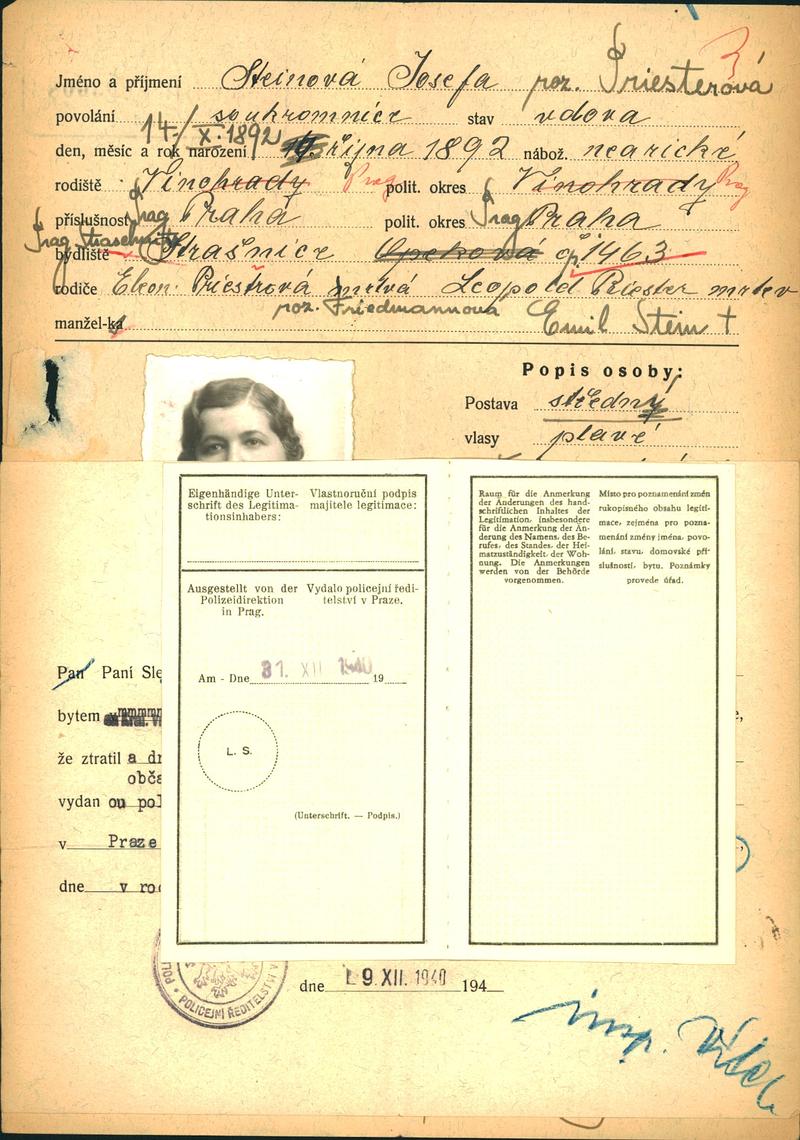 Jméno a příjmení Steinová Josefa roz. Priesterová
povolání soukromnice stav vdova
14./X.1892
den, měsíc a rok narození října 1892 nábož. nearické
rodiště Vinohrady Prag polit. okres Vinohrady Prag
příslušnost Prag Praha polit. okres Prag Praha
Prag Straschnitz
bydliště Strašnice čp. 1463
rodiče Eleon. Priestrová mrtvá Leopold Priester mrtev
roz. Friedmannová
manžel-ka Emil Stein †
Popis osoby:
Postava střední
vlasy plavé
Eigenhändige Unter-
schrift des Legitima-
tionsinhabers:
Vlastnoruční podpis
majitele legitimace:
Ausgestellt von der
Polizeidirektion
in Prag.
Vydalo policejní ředi-
telství v Praze.
Am - Dne 31. XII 1940 19
L. S.
(Unterschrift. — Podpis.)
Raum für die Anmerkung
der Änderungen des hand-
schriftlichen Inhaltes der
Legitimation, insbesondere
für die Anmerkung der Än-
derung des Namens, des Be-
rufes, des Standes, der Hei-
matzuständigkeit, der Woh-
nung. Die Anmerkungen
werden von der Behörde
vorgenommen.
Místo pro poznamenání změn
rukopisného obsahu legiti-
mace, zejména pro pozna-
menání změny jména, povo-
lání, stavu, domovské pří-
slušnosti, bytu. Poznámky
provede úřad.
Pan Paní Sle
bytem
že ztratil a dr
obča
vydan ou pol
v Praze
dne v roc
POLICEJNÍ ŘEDITELSTVÍ V
dne 9. XII. 1940 194
insp.